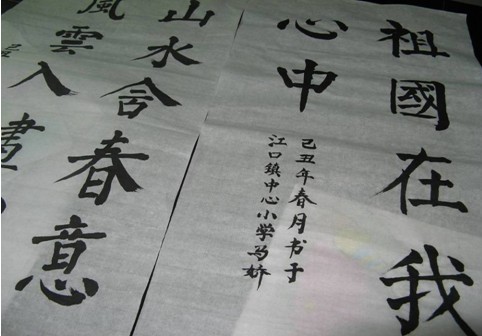 祖國在我
心中
己丑年春月书于
江口鎮中心小学马娇
山水含春意
風雲入畫